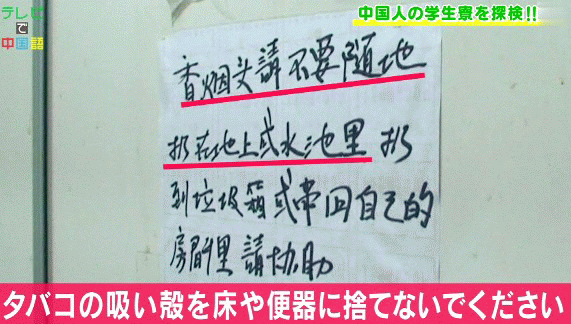 テレビで中国語
中国人の学生寮を探検!!
香烟头請不要隨地
扔在地上或水池里 扔
到垃圾箱或帶回自己的
房間里請协助
タバコの吸い殻を床や便器に捨てないでください